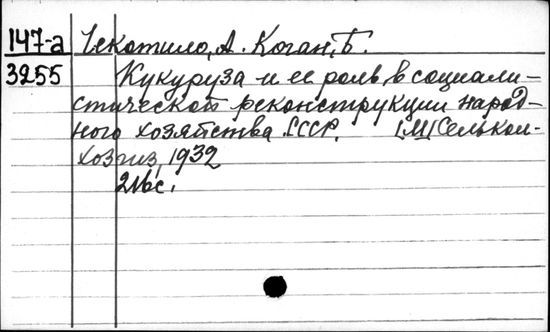 147-а Чекотило, А. Коган, Б.
3255 Кукуруза и ее роль в социали-
стической реконструкции народ-
ного хозяйства СССР. [М] Селькол-
хозгиз, 1932
216с.